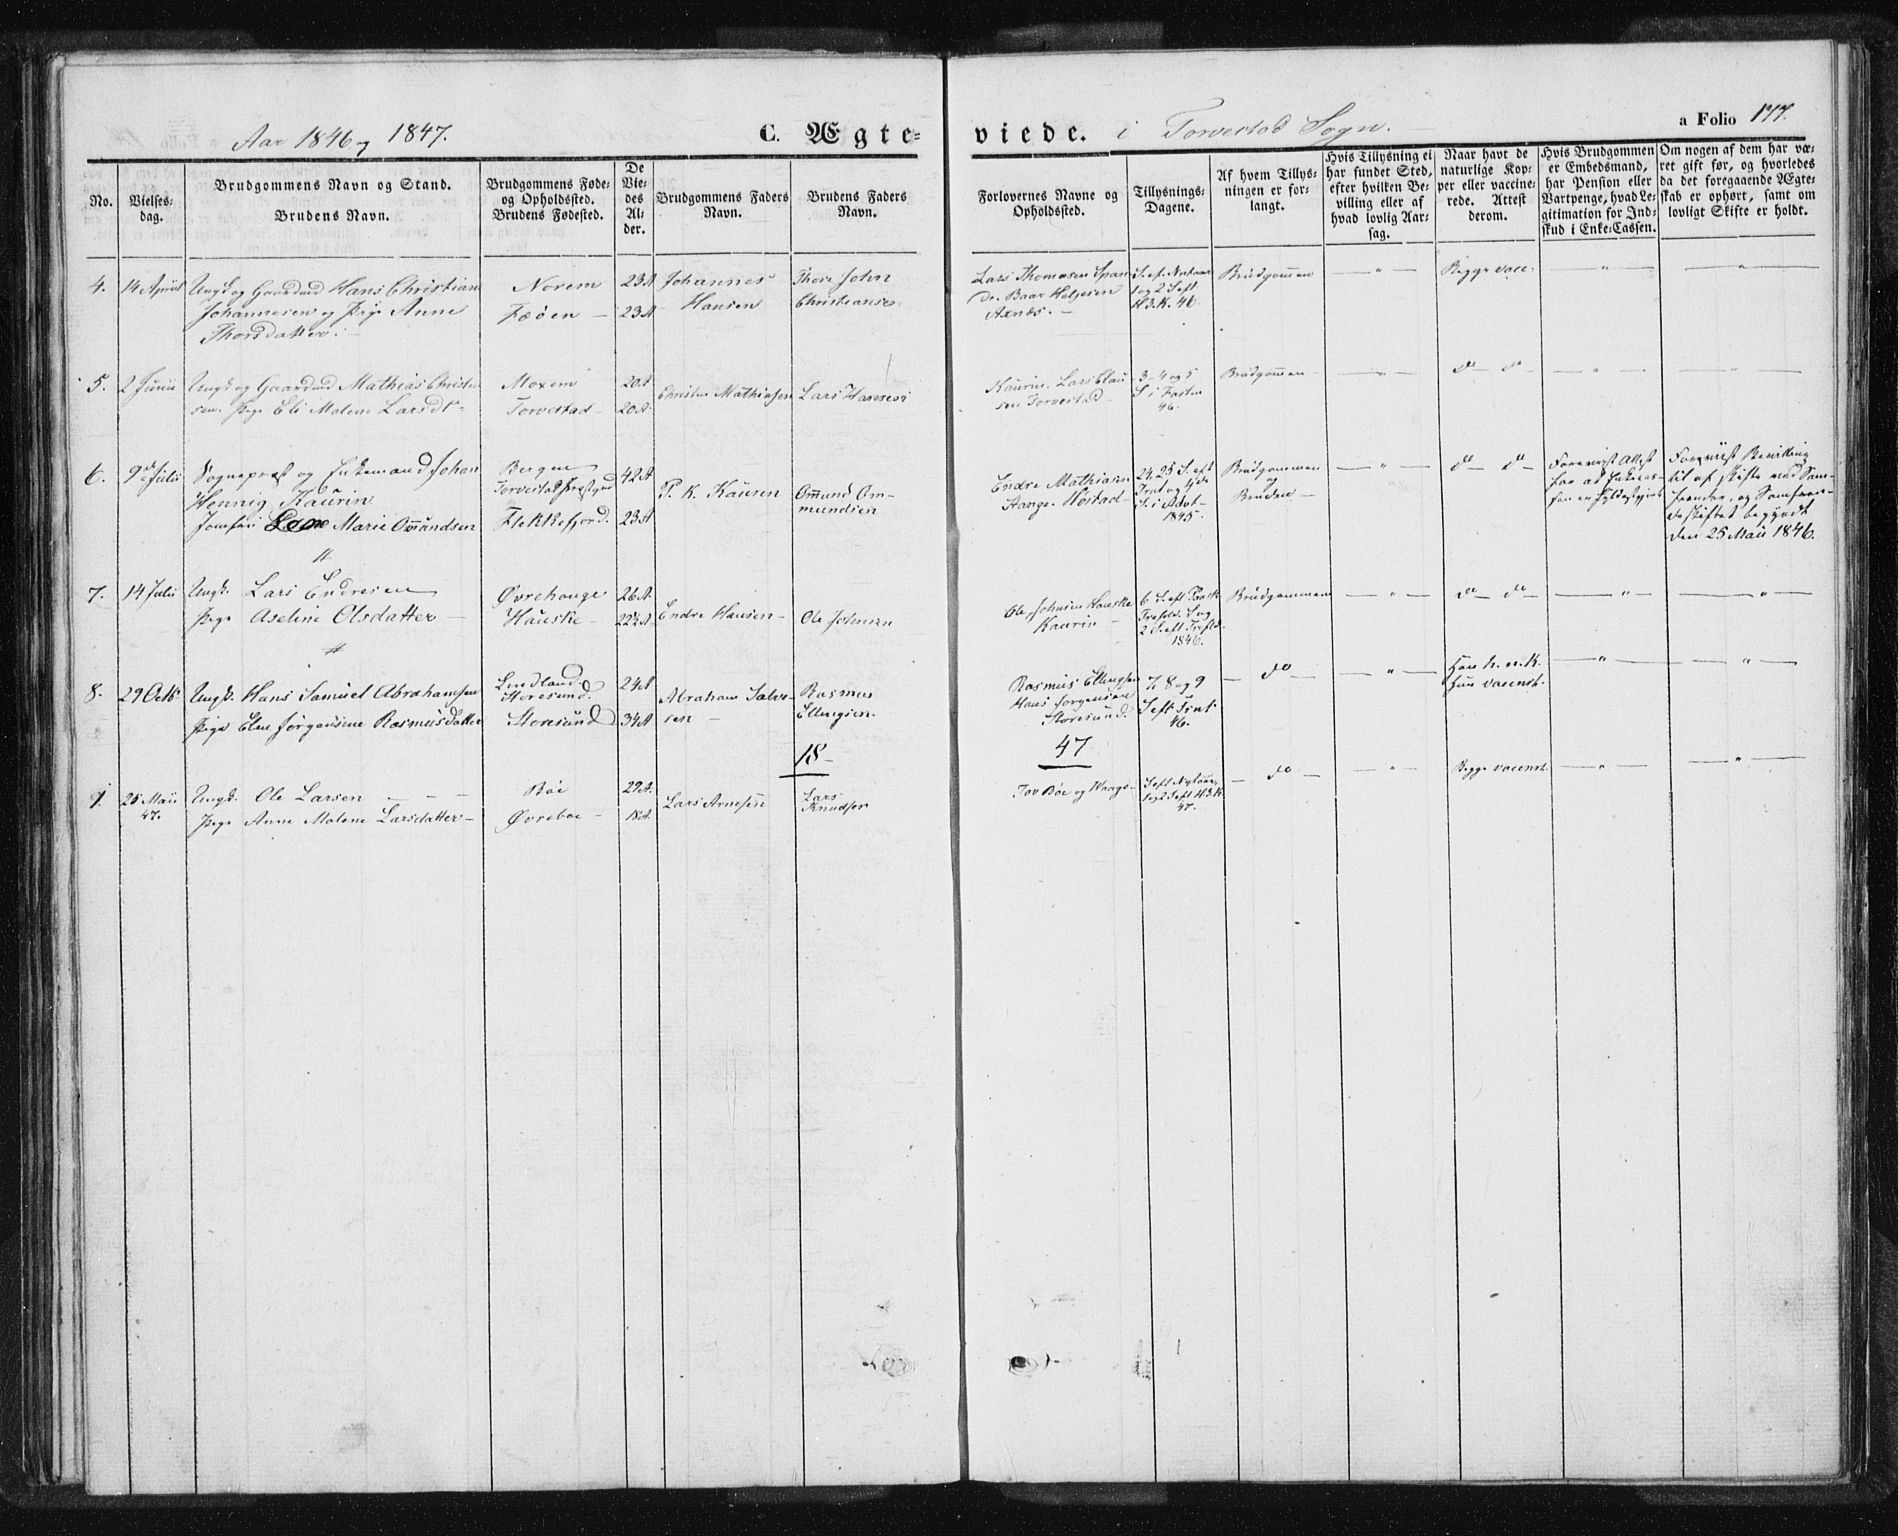 Aar 1846 og 1847.
C. Ægte=
viede. i Torvestad Sogn.
a Folio 177.
No.
Vielses=
dag.
Brudgommens Navn og Stand.
Brudens Navn.
Brudgommens Føde=
og Opholdssted.
Brudens Fødested.
De
Vie=
des
Al=
der.
Brudgommens Faders
Navn.
Brudens Faders
Navn.
Forlovernes Navne og
Opholdssted.
Tillysnings=
Dagene.
Af hvem Tillys=
ningen er for=
langt.
Hvis Tillysning ei
har fundet Sted,
efter hvilken Be=
villing eller af
hvad lovlig Aar=
sag.
Naar havt de
naturlige Kop=
per eller vaccine=
rede. Attest
derom.
Hvis Brudgommen
er Embedsmand,
har Pension eller
Vartpenge, hvad Le=
gitimation for Ind=
skud i Enke=Cassen.
Om nogen af dem har væ=
ret gift før, og hvorledes
da det foregaaende Ægte=
skab er ophørt, samt om
lovligt Skifte er holdt.
4. 14 April
Ungk og Gaardmd Hans Christian
Johannesen og Pige Anne
Thorsdatter. —
Norem
Fæøen —
23 A
23 A
Johannes
Hansen
Thore John
Christiansen
Lars Thomasen
Baar Helgesen
Axnæs. —
S. ef. Nytaar
1 og 2 S eft
H.3.K. 46.
Brudgommen
— " —
Begge vacc.
— " —
— " —
5. 2 Junii
Ungk og Gaardmd Mathias Christen
sen. Pige Eli Malene Larsdt
Moxem
Torvestad —
20 A
20 A.
Christen Mathiasen
Lars
Kaurin. Lars Clau
sen Torvestad —
3 - 4 og 5
S i Fasten
46.
Brudgommen
— " —
do — do —
— " —
— " —
6. 9de Julii
Sognepræst og Enkemand Johan
Hennig Kaurin
Jomfru Lene Marie Omundsen
Bergen
Torvestad Præstgrd
Flekkefjord.
42 A
23 A
P. K. Kauren
Omund Om
mundsen
Endre Mathiasen
Stange. Høstad —
24, 25 S. eft
Trnt og 1ste
S. i Advt —
1845.
Brudgommen
og
Bruden —
— " —
do — do —
Foreviist Attest
for at
Foreviist Bevilling
til at skifte med Sam=
frænder, og Samfræn=
deskiftet begyndt
den 25 Mai 1846.
7. 14 Julii
Ungk. Lars Endresen
Pige Aseline Olsdatter —
Øvrehauge
Hauske —
26 A
22½ A.
Endre Hansen —
Ole Johnsen
Ole Johnsen Hauske
Kaurin —
6. S. eft Paask
Trefold. S og
2 S. eft Trefld.
1846.
Brudgommen
— " —
do — do —
— " —
— " —
8. 29 Octb
Ungk. Hans Samuel Abrahamsen
Pige Elen Jørgensine Rasmusdatter
Lindland
Storesund.
Storesund
24 A
34 A
Abraham
sen —
Rasmus
Ellingsen.
Rasmus Ellingsen
Hans Jørgensen
Storesund.
7, 8 og 9
S eft Trnt.
46.
— do —
— " —
Han h. n. K.
Hun vaccnrt.
— " —
— " —
18 —
47
1. 25 Maii
47.
Ungk. Ole Larsen — — —
Pige Anne Malene Larsdatter —
Bøe
Øvreboe —
29 A.
18 A.
Lars Arnesen
Lars
Knudsen
Tov Bøe og Waage —
S eft Nytaar,
1 og 2 S eft H.3.K.
47.
— do —
— " —
Begge vaccnrt.
— " —
— " —